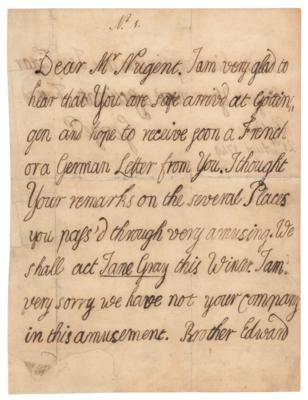 No. 1.
Dear Mr Nugent. I am very glad to
hear that You are safe arriv'd at Gottin
gen and hope to receive soon a French
or a German Letter from You. I thought
Your remarks on the several Places
you pass'd through very amusing. We
shall act Jane Gray this Winter. I am
very sorry we have not your company
in this amusement. Brother Edward